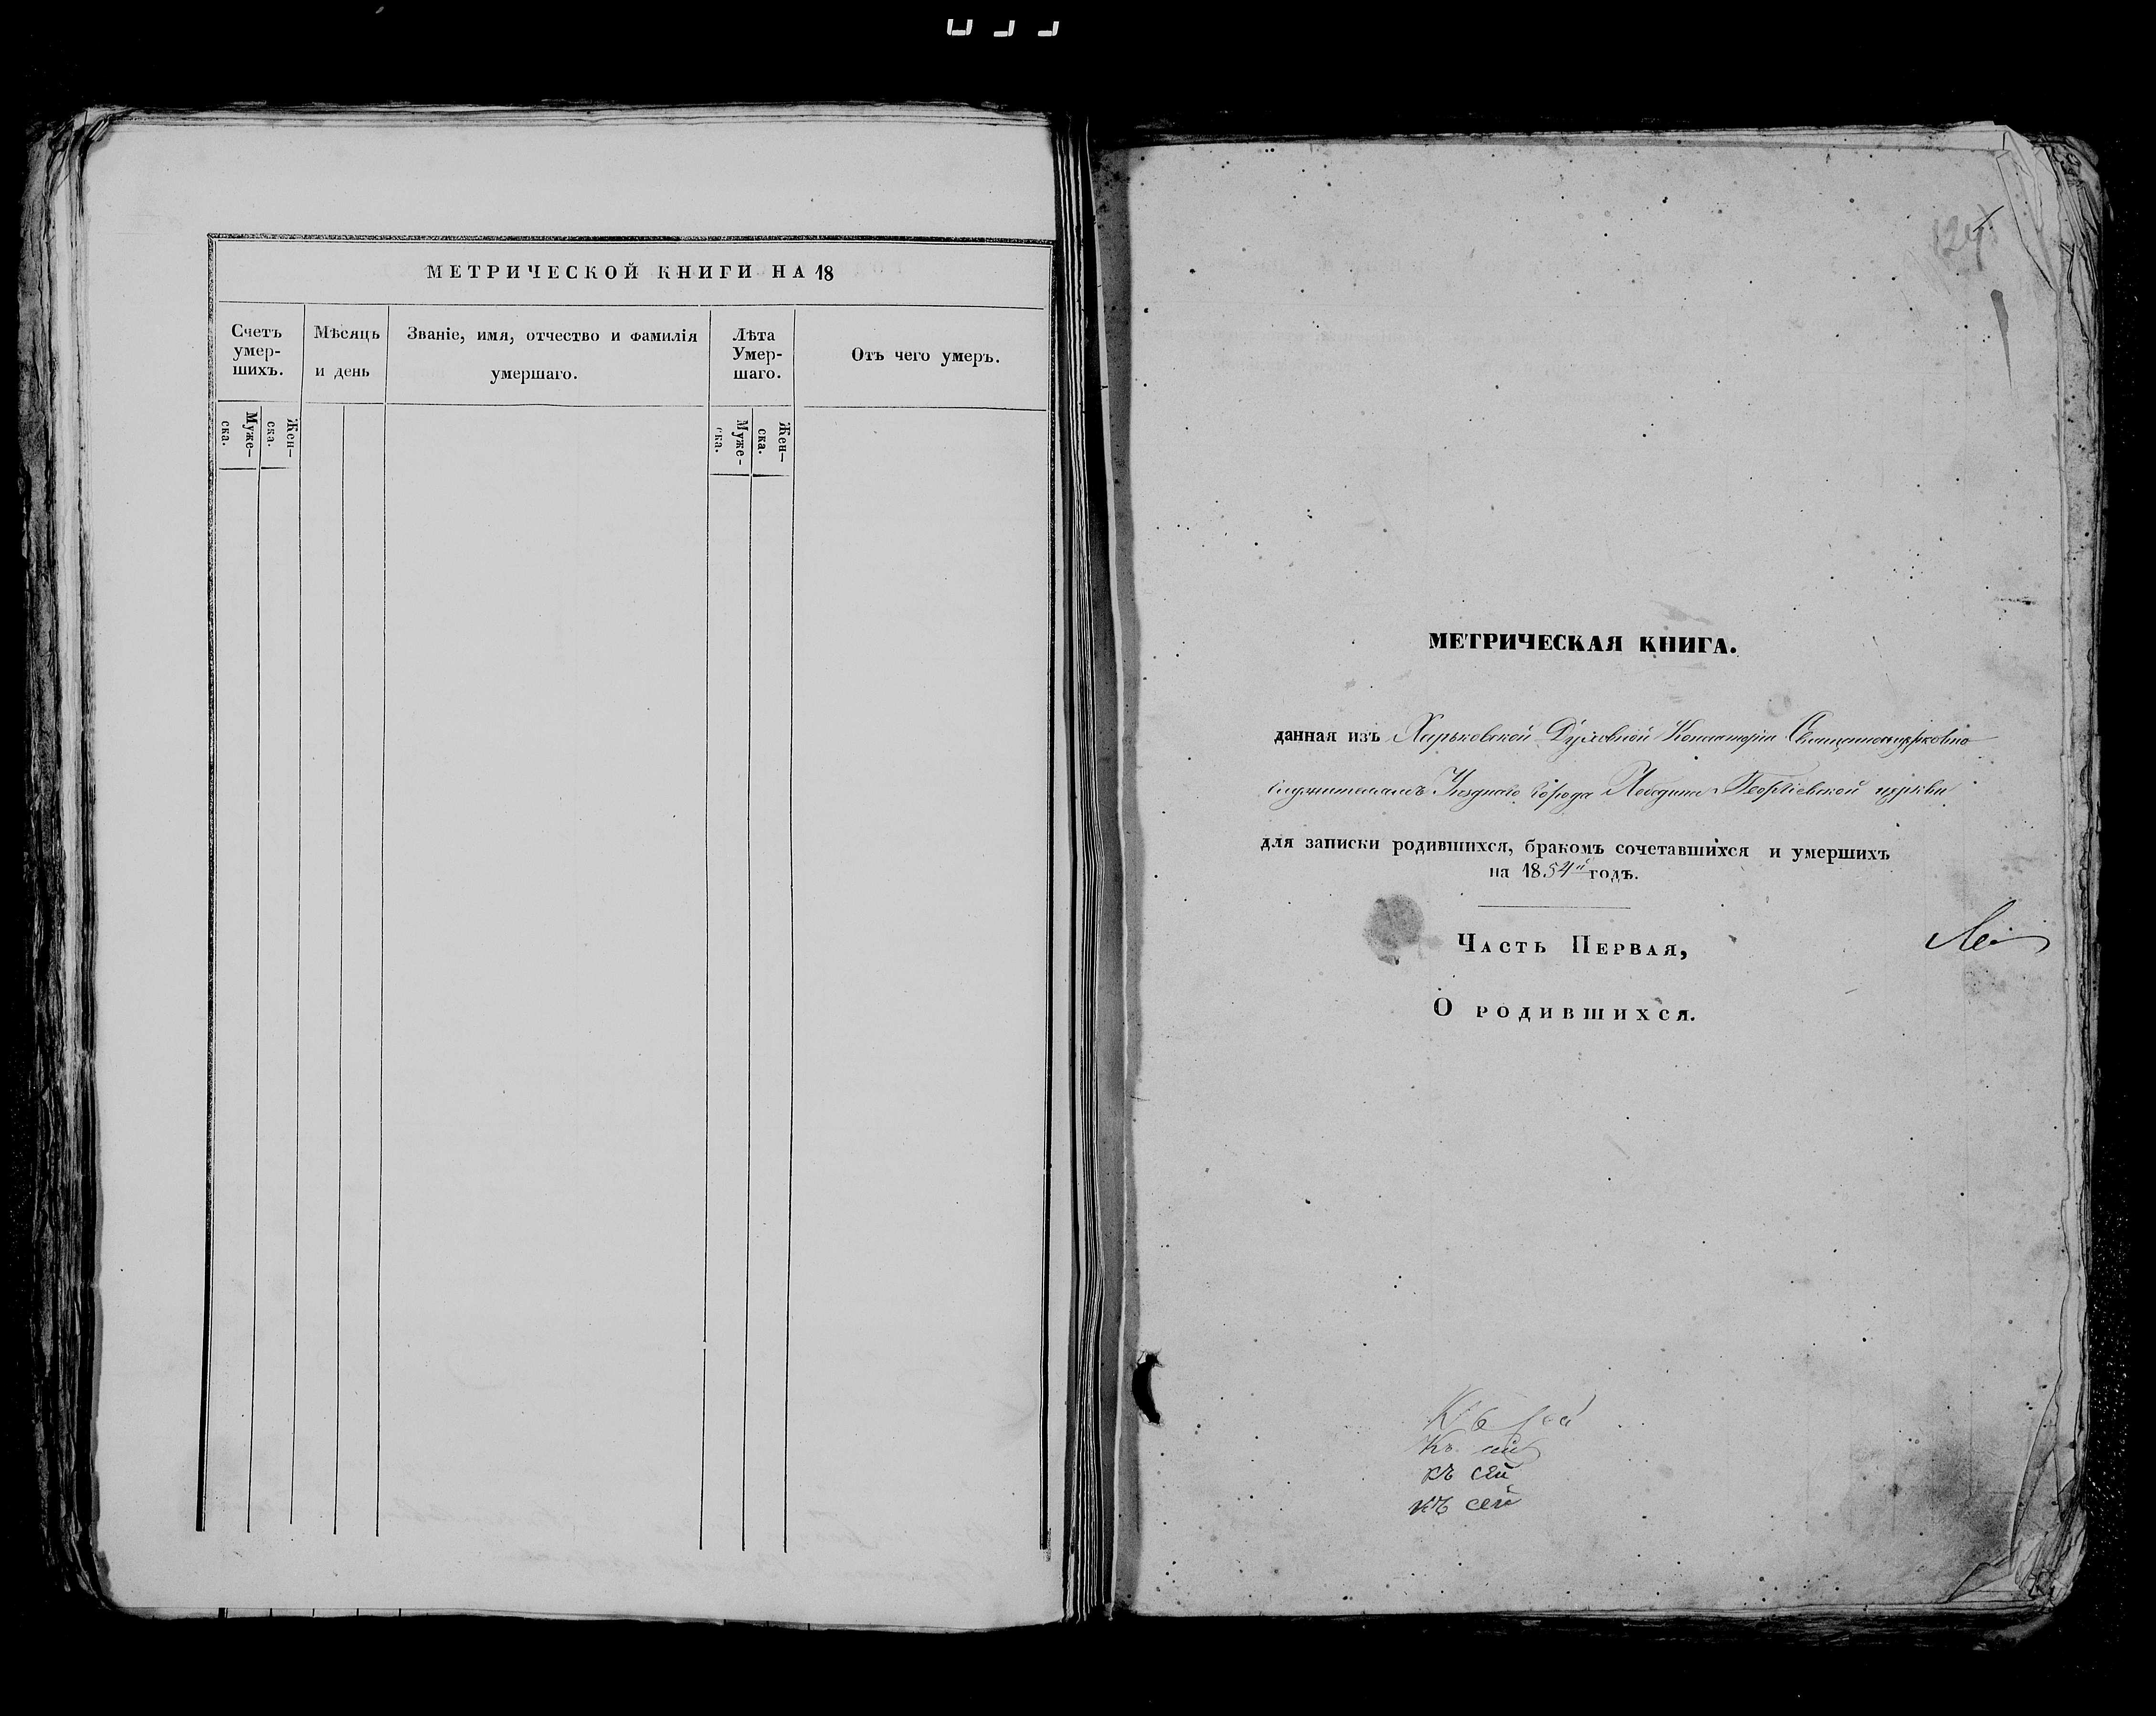 МЕТРИЧЕСКОЙ КНИГИ НА 18
Счетъ умер-шихъ.
Мѣсяцъ и день
Званіе, имя, отчество и фамилія умершаго.
Лѣта Умер-шаго.
Отъ чего умеръ.
Муже-ска.
Жен-ска.
Муже-ска.
Жен-ска.
МЕТРИЧЕСКАЯ КНИГА.
данная изъ Харьковской Духовной Консисторіи Священноцерковно
служителямъ Уѣзднаго города Лебедина Георгіевской церкви
для записки родившихся, бракомъ сочетавшихся и умершихъ
на 1854й годъ.
Часть Первая,
О родившихся.
къ сей
къ сей